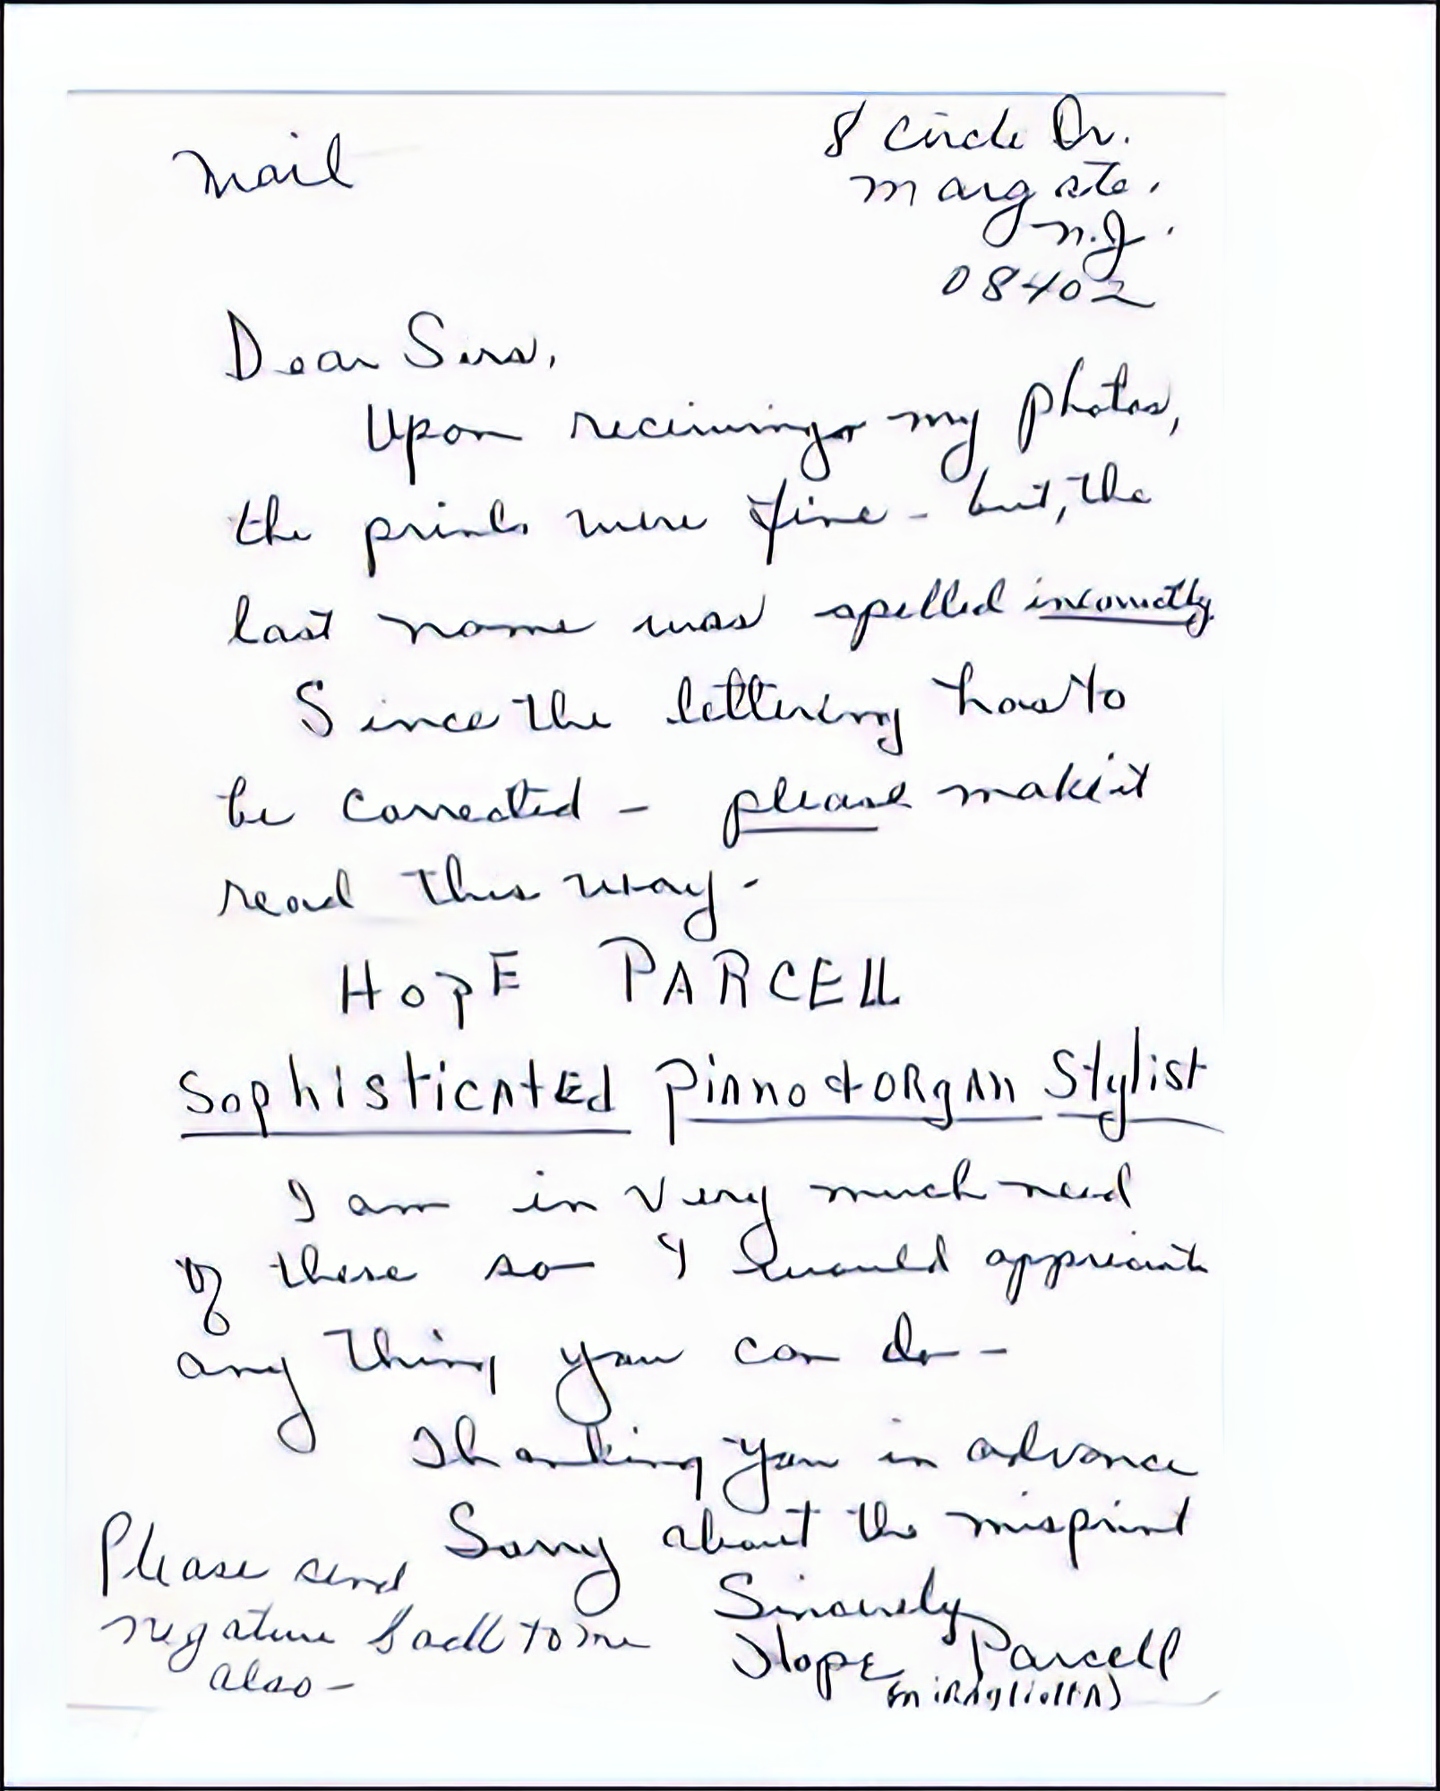 Mail
8 Circle Dr.
Margate.
N.J.
08402
Dear Sirs,
Upon receiving my photos,
the prints were fine - but, the
last name was spelled incorrectly
Since the lettering has to
be corrected - please make it
read this way -
HOPE PARCELL
Sophisticated Piano & Organ Stylist
I am in very much need
of these so I would appreciate
any thing you can do -
Thanking you in advance
Sorry about the misprint
Sincerely
Hope Parcell
(Miragliotta)
Please send
negative back to me
also -